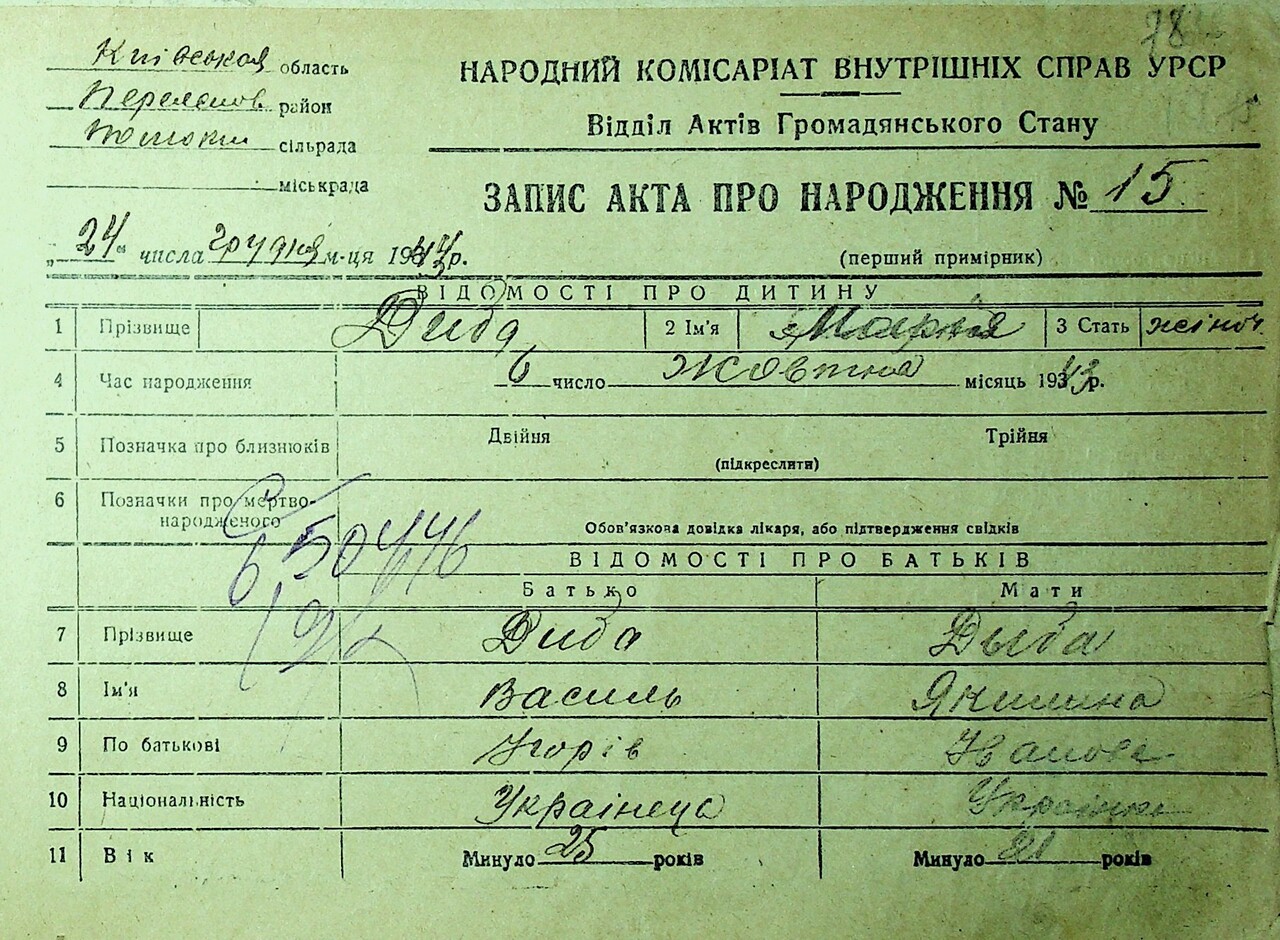 78
Київської область
НАРОДНИЙ КОМІСАРІАТ ВНУТРІШНІХ СПРАВ УРСР
район
Відділ Актів Громадянського Стану
сільрада
міськрада
ЗАПИС АКТА ПРО НАРОДЖЕННЯ № 15
„24“ числа грудня м-ця 194 р.
(перший примірник)
ВІДОМОСТІ ПРО ДИТИНУ
1 Прізвище Диба 2 Ім'я Марія 3 Стать жіноч.
4 Час народження 6 число Жовтня місяць 1943р.
5 Позначка про близнюків Двійня Трійня
(підкреслити)
6 Позначки про мертво-
народженого Обов'язкова довідка лікаря, або підтвердження свідків
ВІДОМОСТІ ПРО БАТЬКІВ
Батько Мати
7 Прізвище Диба Дыба
8 Ім'я Василь Якилина
9 По батькові Ігорів Іванове
10 Національність Українець Українка
11 Вік Минуло 25 років Минуло 21 років